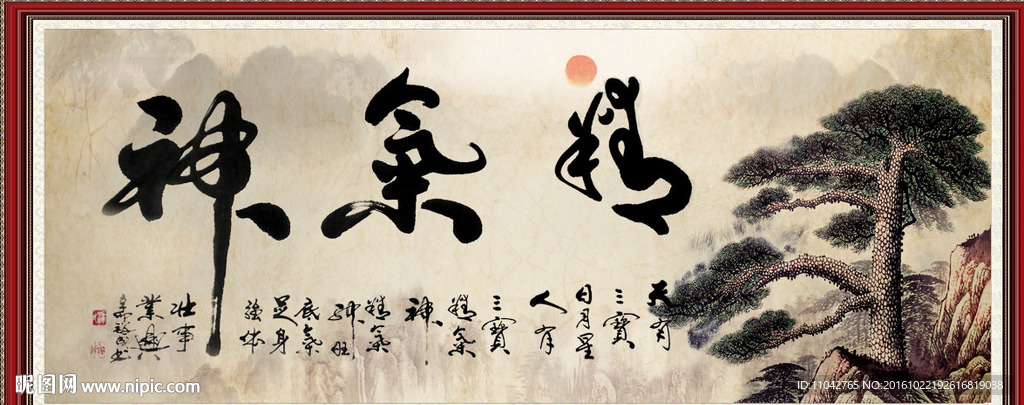 精氣神
天有
三寶
日月星
人有
三寶
精氣
神
精氣
神旺
底氣
足身
強体
壮事
業興
昵图网 www.nipic.com
ID:11042765 NO:20161022192616819038